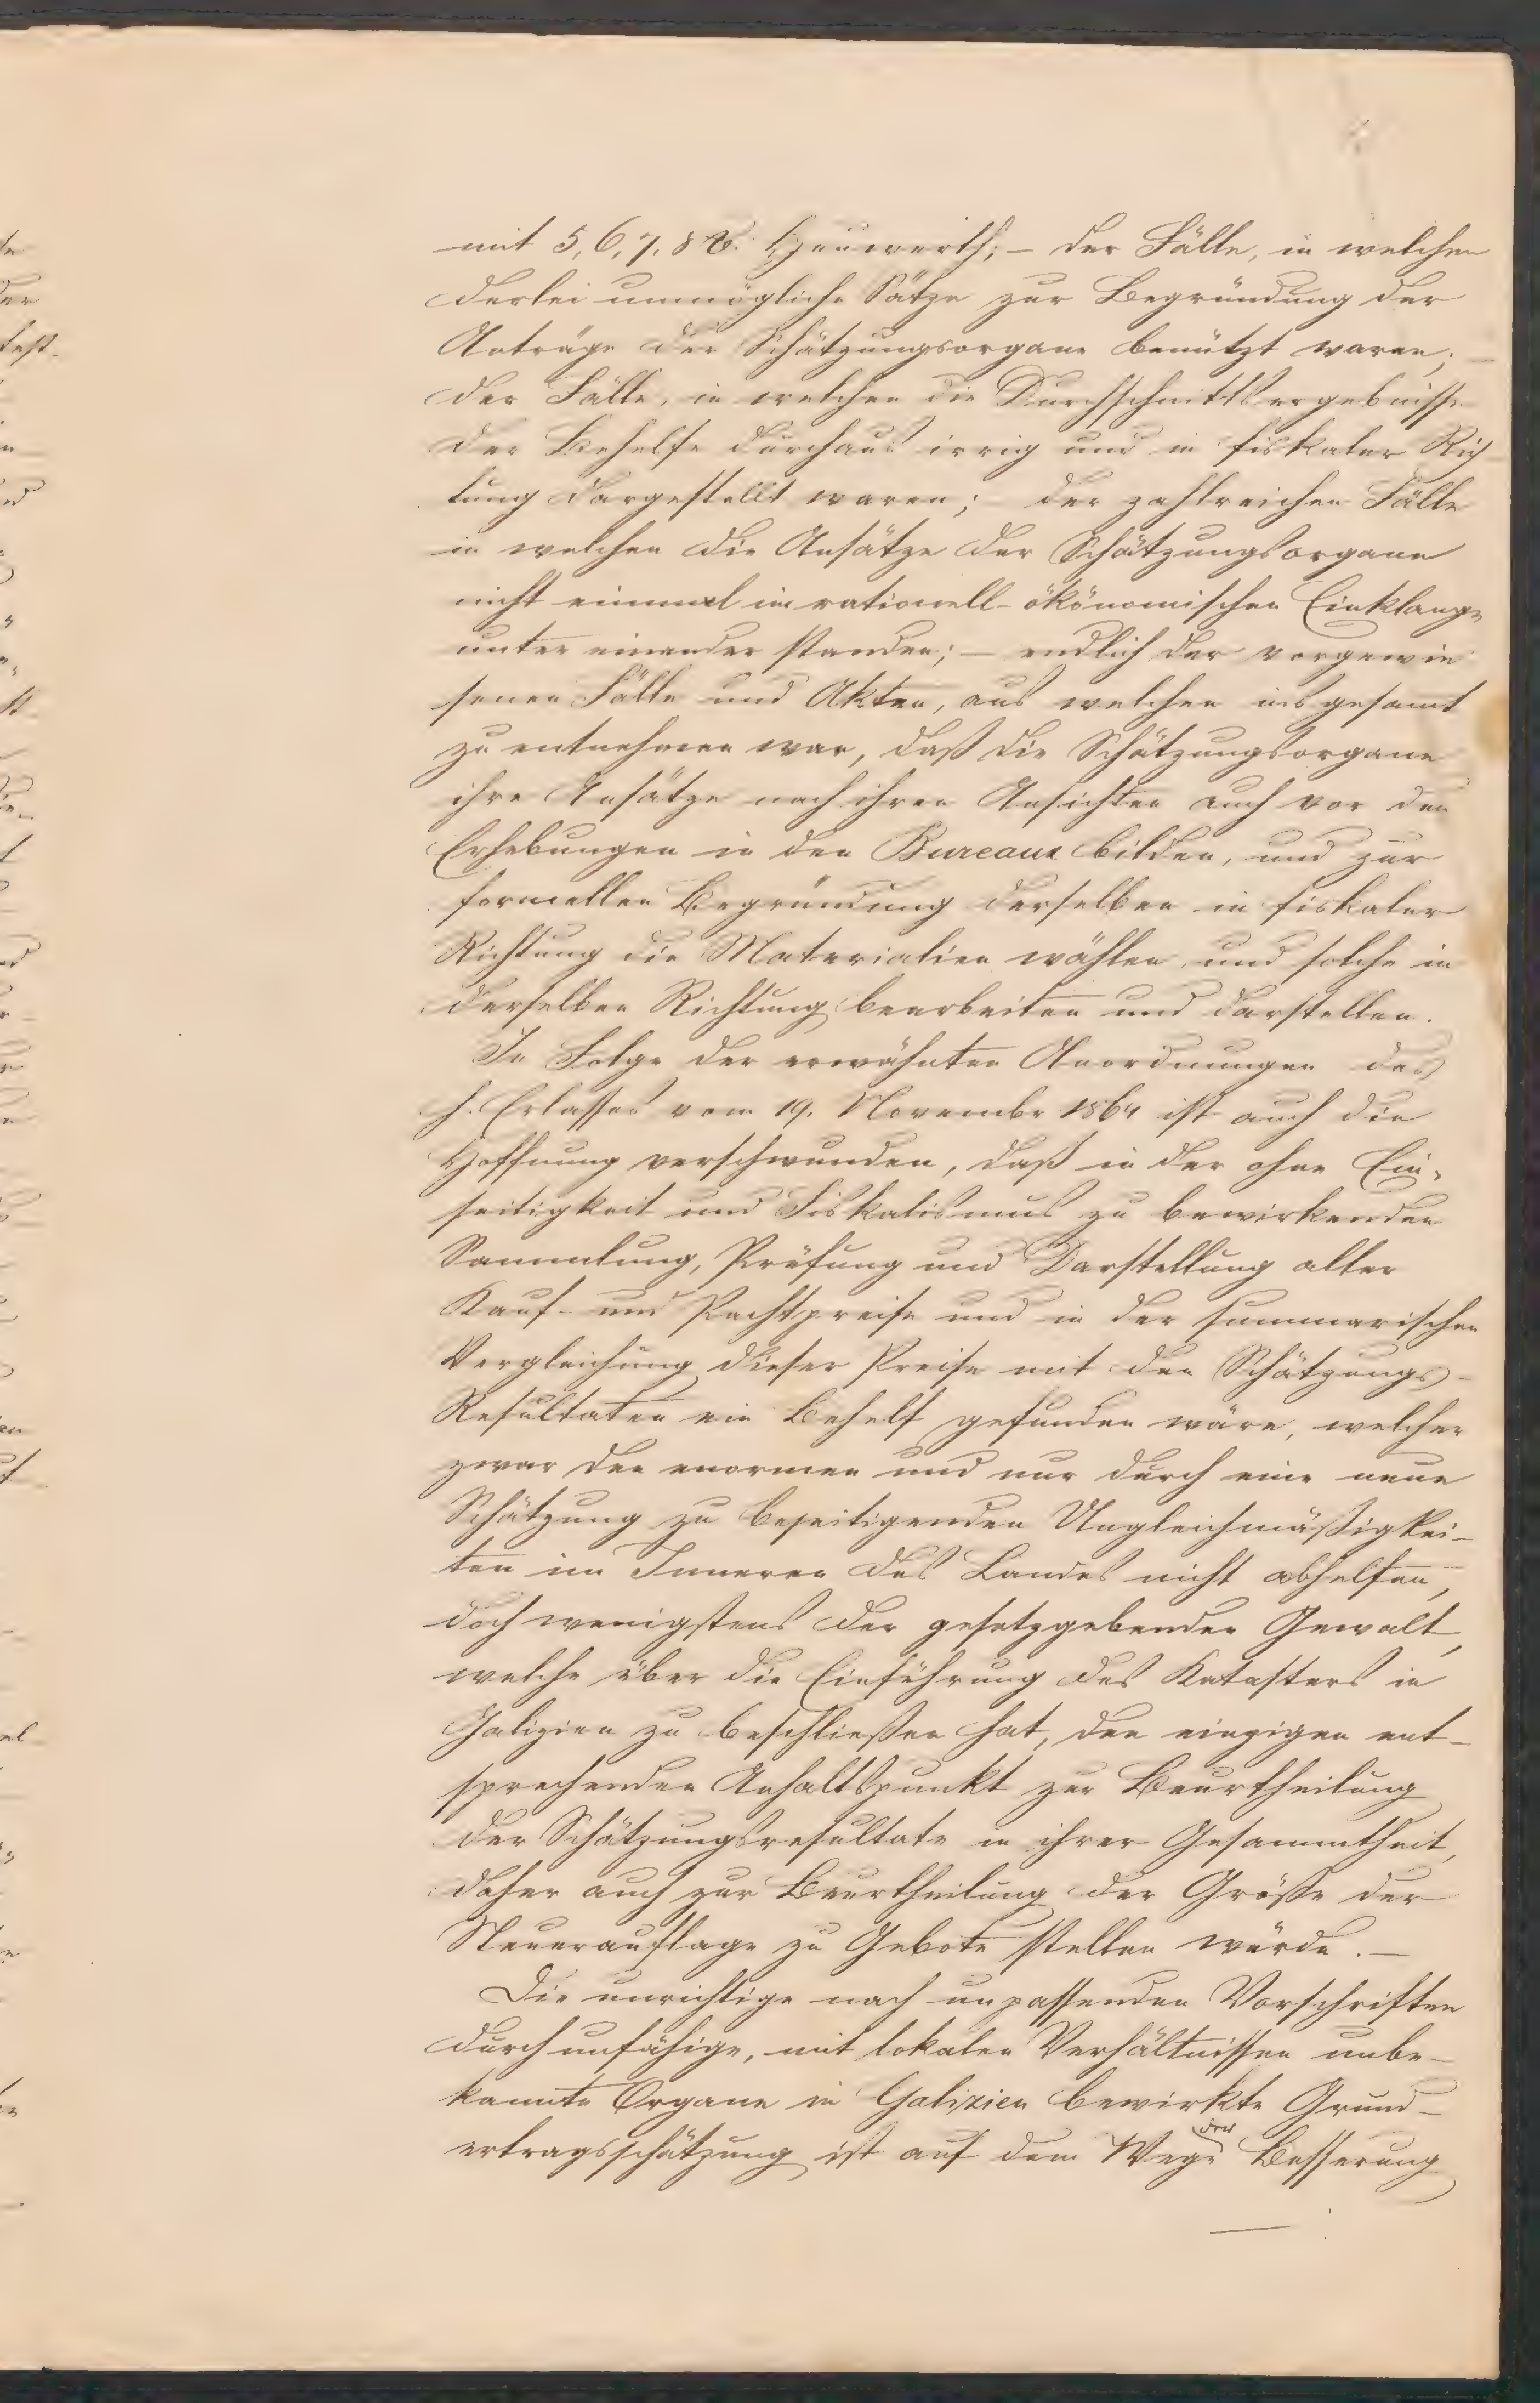 mit 5, 6, 7, 8 % Heuwerth; – der Fälle, in welchen
derlei unmögliche Sätze zur Begründung der
Anträge der Schätzungsorgane benützt waren; –
der Fälle, in welchen die Durchschnittsergebnisse
der Behelfe durchaus irrig und in fiskaler Rich-
tung dargestellt waren; – der zahlreichen Fälle
in welchen die Ansätze der Schätzungsorgane
nicht einmal im rationell-ökönomischen Einklange
unter einander standen; – endlich der vorgewie
senen Fälle und Akten, aus welchen insgesamt
zu entnehmen war, daß die Schätzungsorgane
ihre Ansätze nach ihren Ansichten auch vor den
Erhebungen in den Bureaux bilden, und zur
formellen Begründung derselben in fiskaler
Richtung die Materialien wählen und solche in
derselben Richtung bearbeiten und darstellen.
In Folge der erwähnten Anordnungen des
h. Erlasses vom 19. Novembr 1864 ist auch die
Hoffnung verschwunden, daß in der ohne Ein-
seitigkeit und Fiskalismus zu bewirkenden
Sammlung, Prüfung und Darstellung aller
Kauf- und Pachtpreise und in der summarischen
Vergleichung dieser Preise mit den Schätzungs-
Resultaten ein Behelf gefunden wäre, welcher
zwar den enormen und nur durch eine neue
Schätzung zu beseitigenden Ungleichmäßigkei-
ten im Inneren des Landes nicht abhelfen,
doch wenigstens der gesetzgebenden Gewalt,
welche über die Einführung des Katasters in
Galizien zu beschließen hat, den einzigen ent-
sprechenden Anhaltspunkt zur Beurtheilung
der Schätzungsresultate in ihrer Gesammtheit,
daher auch zur Beurtheilung der Größe der
Steuerauflage zu Gebote stellen würde. –
Die unrichtige nach unpassenden Vorschriften
durch unfähige, mit lokalen Verhältnissen unbe-
kannte Organe in Galizien bewirkte Grund-
ertragsschätzung ist auf dem Wege der Besserung